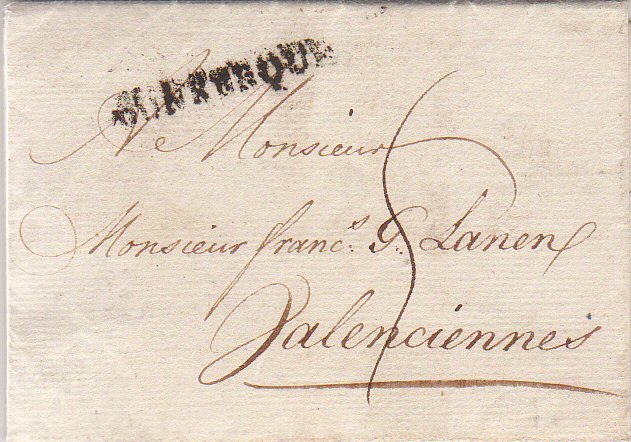 DUNKERQUE
A Monsieur
Monsieur franc.s G. Lanen
Valenciennes